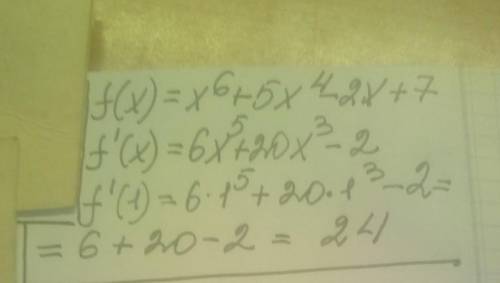 f(x)=x⁶+5x⁴-2x+7
f'(x)=6x⁵+20x³-2
f'(1)=6·1⁵+20·1³-2=
=6+20-2=24